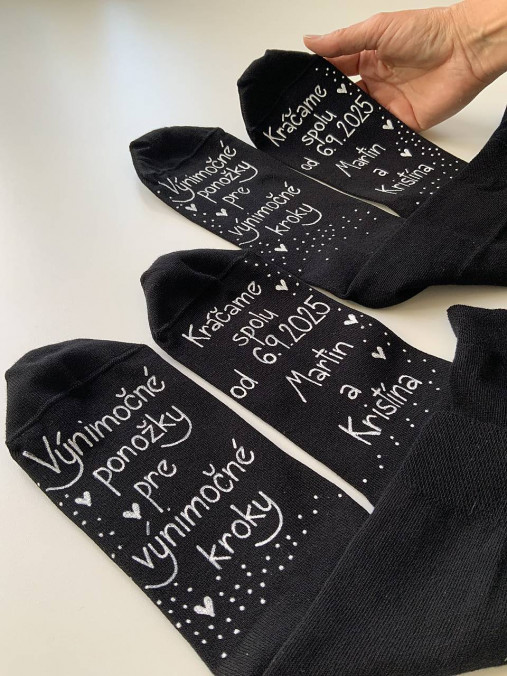 Výnimočné
ponožky
pre
výnimočné
kroky
Kráčame
spolu
od 6.9.2025
Martin
a
Kristína
Výnimočné
ponožky
pre
výnimočné
kroky
Kráčame
spolu
od 6.9.2025
Martin
a
Kristína